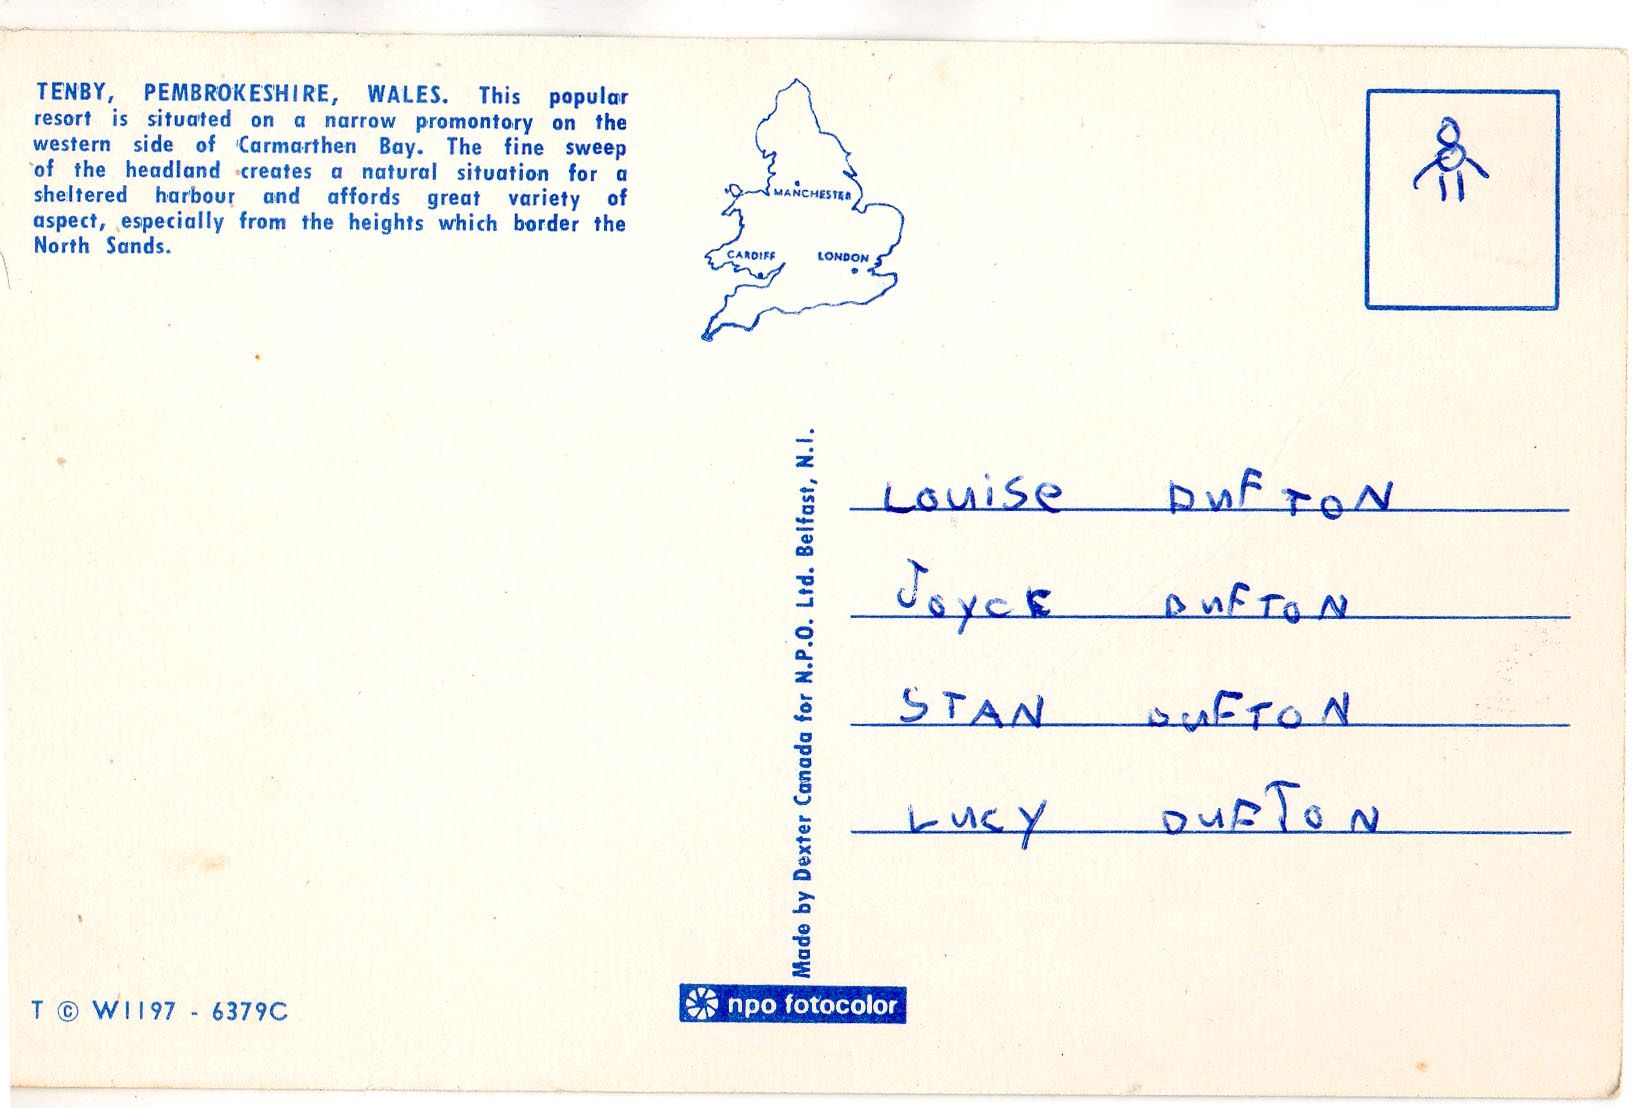 TENBY, PEMBROKESHIRE, WALES. This popular
resort is situated on a narrow promontory on the
western side of Carmarthen Bay. The fine sweep
of the headland creates a natural situation for a
sheltered harbour and affords great variety of
aspect, especially from the heights which border the
North Sands.
MANCHESTER
CARDIFF
LONDON
Made by Dexter Canada for N.P.O. Ltd. Belfast, N.I.
LouiSe DuFTON
JoycE DuFTON
STAN DuFTON
LucY DuFTON
T © W1197 - 6379C
npo fotocolor